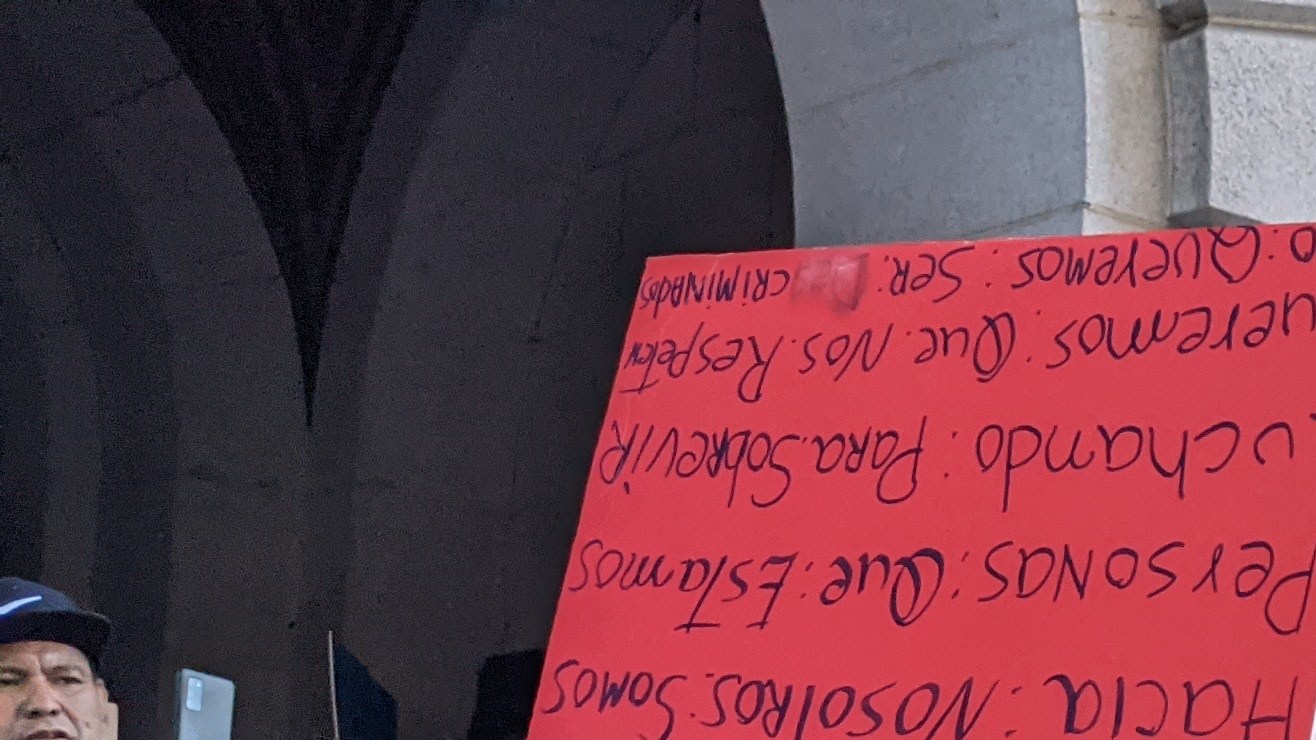 Hacia: Nosotros. Somos
PersoNas: Que: Estamos
uchando: PaRa. SobReviR
ueremos: Que. Nos. Respeten
o: Queremos: Ser. CRiMiNAdos